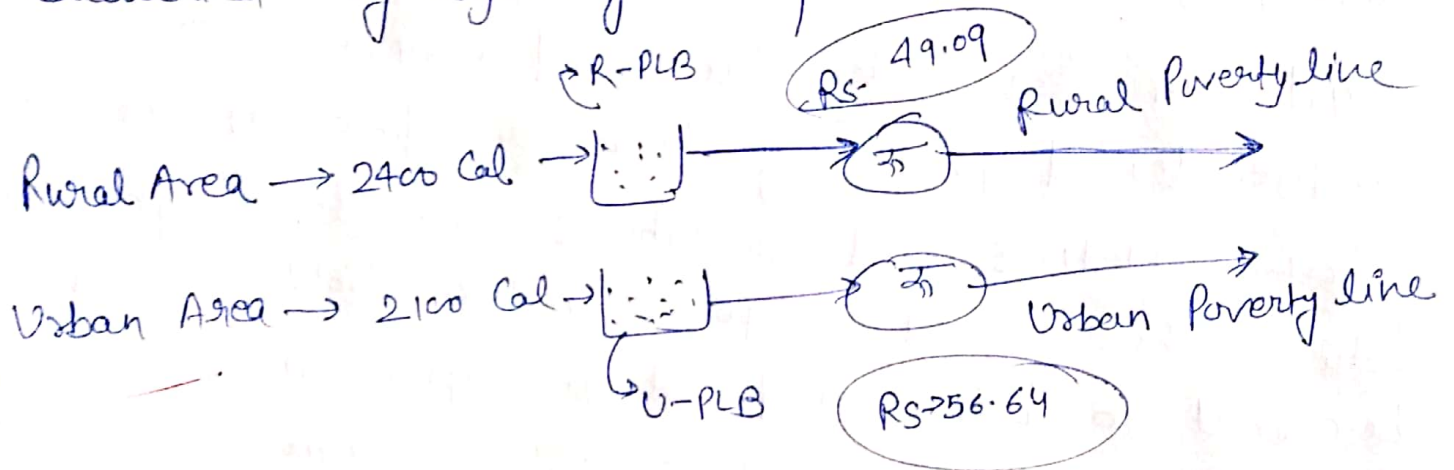 R-PLB
Rs. 49.09
Rural Area → 2400 Cal → रु → Rural Poverty line
Urban Area → 2100 Cal → रु → Urban Poverty line
U-PLB
RS→56.64